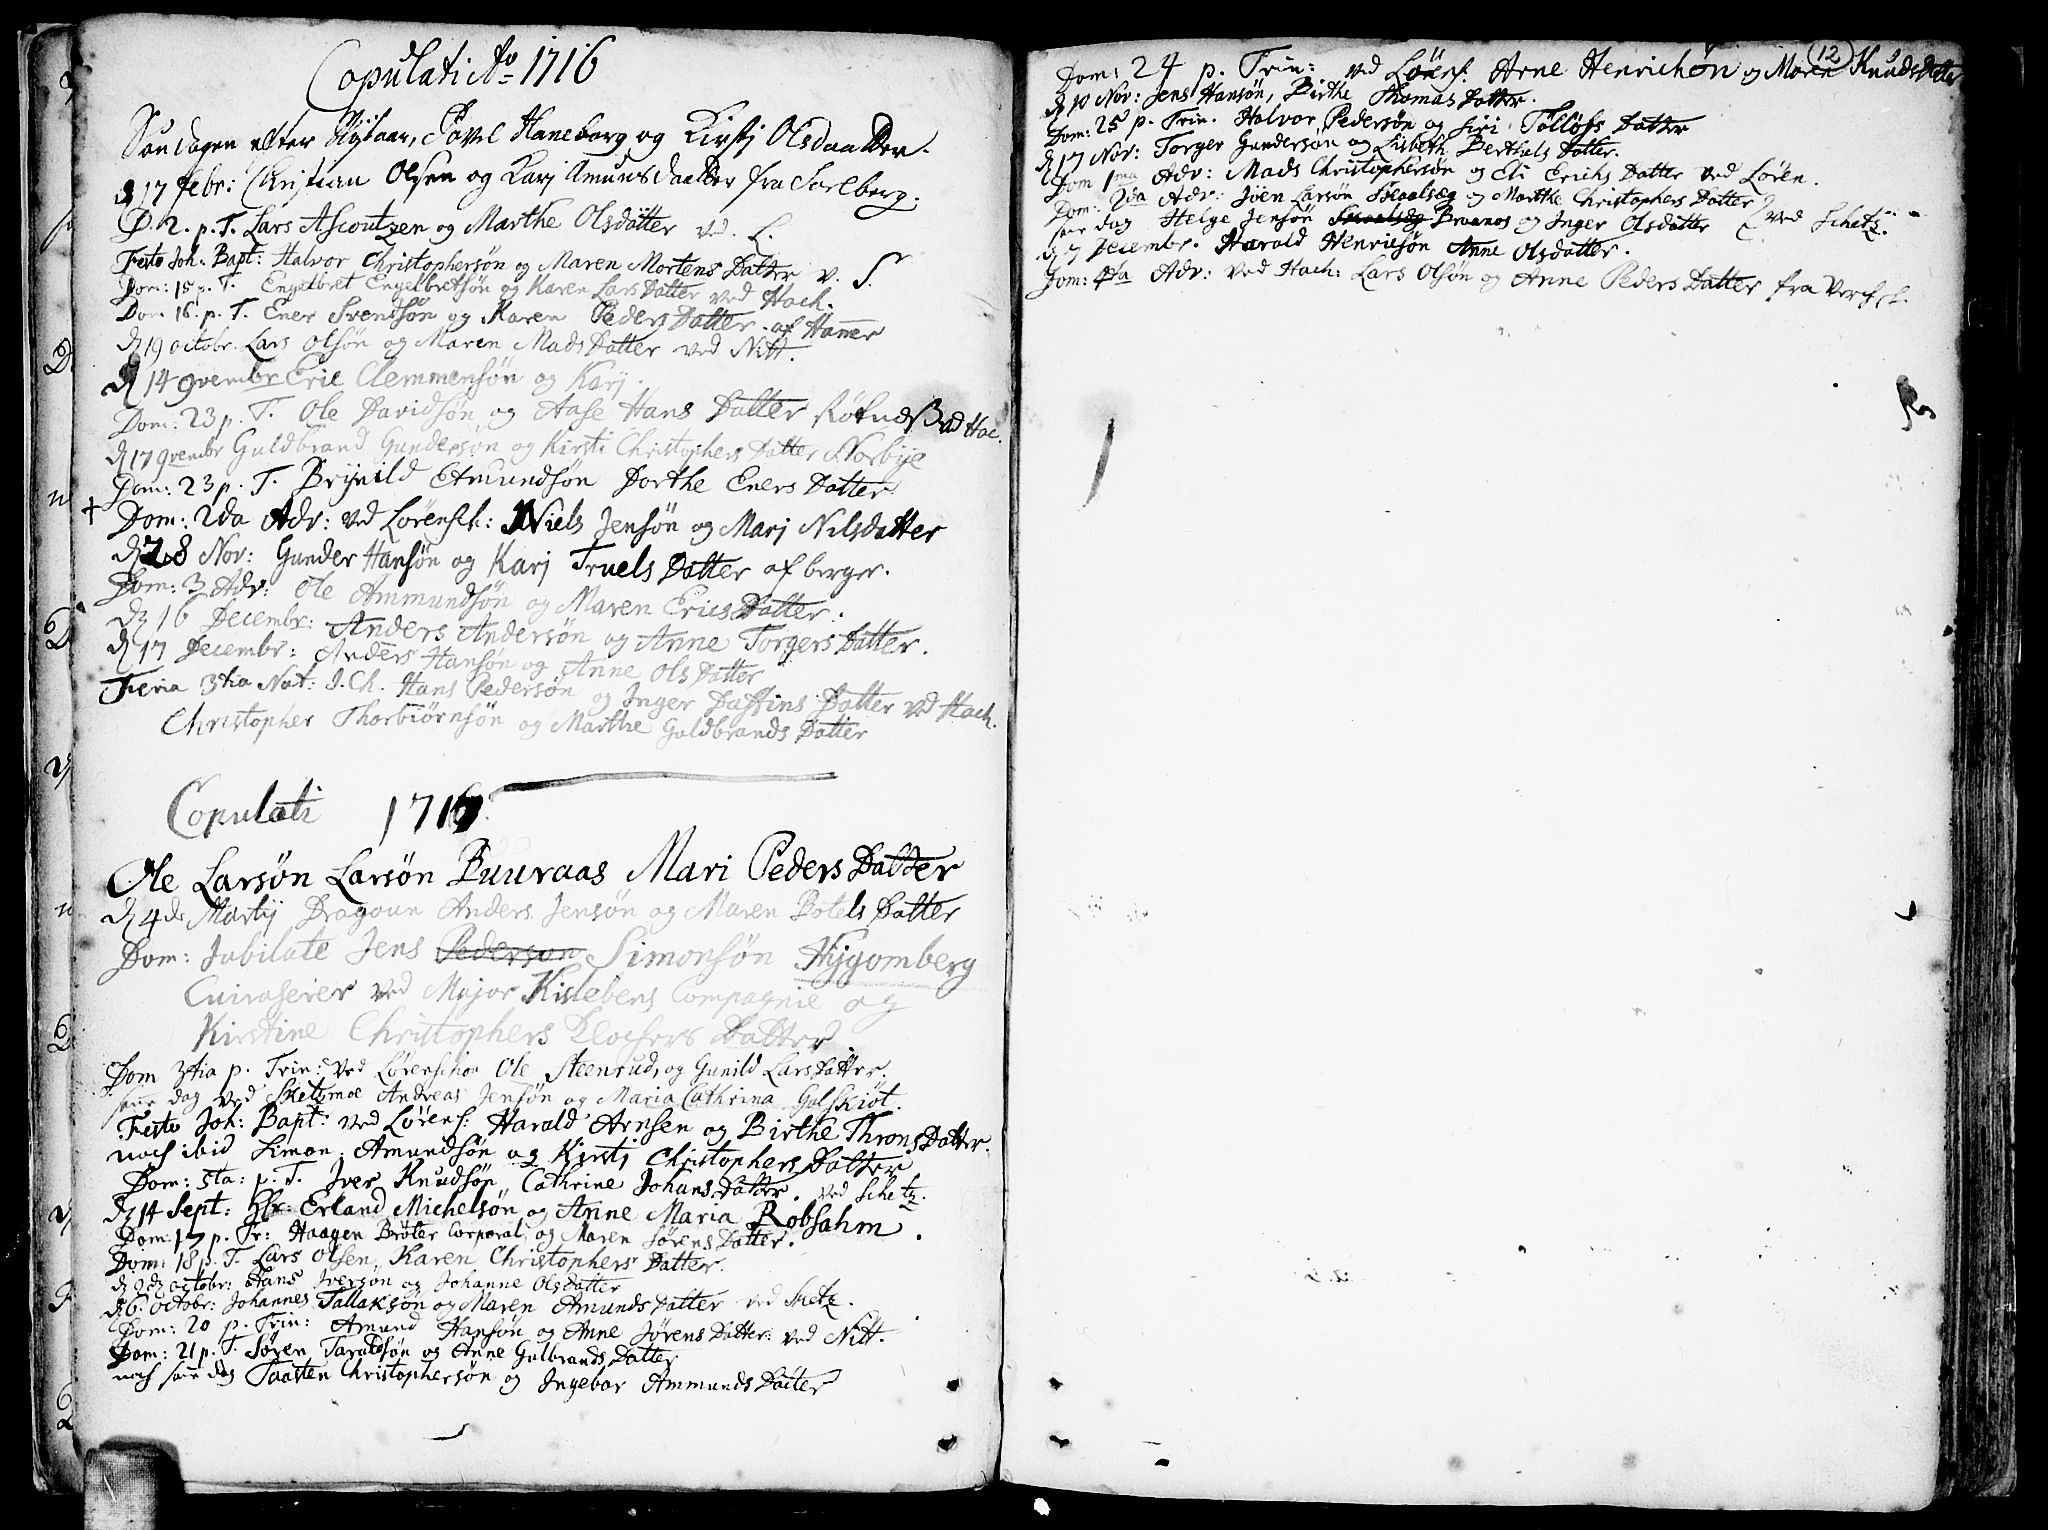 Copulati Ao 1716
Søndagen efter Nÿtaar, Povel Haneborg og Kirstj Olsdaatter.
d 17 febr: Christian Olsen og Karj Amunsdaatter fra Sørlberg.
D. 2. p. T. Lars Ascoutzen og Marthe Olsdatter ved. L.
Festo Joh. Bapt: Halvor Christophersøn og Maren Mortens Datter v. S.
Dom: 15 p. T. Engelbret Engelbretsøn og Karen Lars Datter ved Hach.
Dom 16. p. T. Ener Svendsøn og Karen Peders Datter af Hamer
d 19 octobr. Lars Olsøn og Maren Mads Datter ved Nitt.
d 14 9vembr Eric Clemmensøn og Karj.
Dom: 23 p. T. Ole Davidsøn og Aase Hans Datter Røtnæs vd Hac.
d 17 9vembr Guldbrand Gundersøn og Kirsti Christophers Datter Norbÿe
Dom: 23 p. T. Brÿnild Amundsøn Dorthe Eners Datter
+ Dom: 2da Adv: ved Lørensk: Niels Jensøn og Marj Nilsdatter
d 28 Nov: Gunder Hansøn og Karj Truels Datter af berger.
Dom: 3 Adv: Ole Ammundsøn og Maren Erics Datter.
d 16 Decembr: Anders Andersøn og Anne Torgers Datter.
d 17 Decembr: Anders Hansøn og Anne Ols Datter
Feria 3tia Nat: J. Ch. Hans Pedersøn og Inger Daffins Datter ved Hach.
Christopher Thorbiörnsön og Marthe Guldbrands Datter
Copulati 1717
Ole Larsøn Larsøn Buuraas Mari Peders Datter
d 4de Martij Dragoun Anders Jensøn og Maren Botels Datter
Dom: Jubilate Jens Pederson Simonsøn Hÿgomberg
Cuiraserer ved Major Kislebens Compagnie og
Kirstine Christophers Klochers Datter
Dom 3tia p. Trin: ved Lørenschou Ole Steenrud, og Gunild Lars datter.
same dag ved Sketzmoe Andreas Jensøn og Maria Cathrina Gulskiøt.
Festo Joh: Bapt: ved Lørens: Harald Arnsen og Birthe Throns Datter.
noch ibid Simon Amundsøn og Kirsti Christophers Datter
Dom: 5ta: p. T. Iver Knudsøn Cathrine Johans Datter. ved Schetz.
d 14 Sept: Hr: Erland Michelsøn og Anne Maria Robsahm.
Dom: 17 p. Tr: Haagen Brøter Corporal, og Maren Sørens Datter.
Dom: 18 p. T. Lars Olsen, Karen Christophers Datter.
d 2d octobr: Hans Iversøn og Johanne Olsdatter
d 6. octobr: Johannes Tallaksøn og Maren Amunds Datter ved Sketz.
Dom: 20 p. Trin: Amund Hansøn og Anne Jørens Datter: ved Nitt.
Dom: 21 p. T. Søren Taraldsøn og Anne Gulbrands Datter
noch same dag Taasten Christophersøn og Ingebor Ammunds Datter
12
Dom: 24 p. Trin: ved Lörens. Arne Henrichøn og Maren Knuds datter
d 10 Nov: Jens Hansøn, Birthe Thomas Datter.
Dom: 25 p. Trin. Halvor Pedersøn og Siri Tolløfs Datter
d 17 Nov: Torger Gundersøn og Lisbeth Berthels Datter.
Dom 1ma Adv: Mads Christophersøn og Eli Erichs Datter ved Løren.
Dom: 2da Adv: Joen Larsøn Skaalsæg og Marthe Christophers Datter
samme dag Helge Jensøn Skaalsæg Bruanas og Inger Olsdatter } ved Schetz.
d 7 Decembr. Harald Henricsøn Anne Olsdatter.
Dom: 4ta Adv: ved Hach: Lars Olsøn og Anne Peders Datter fra Verchet.